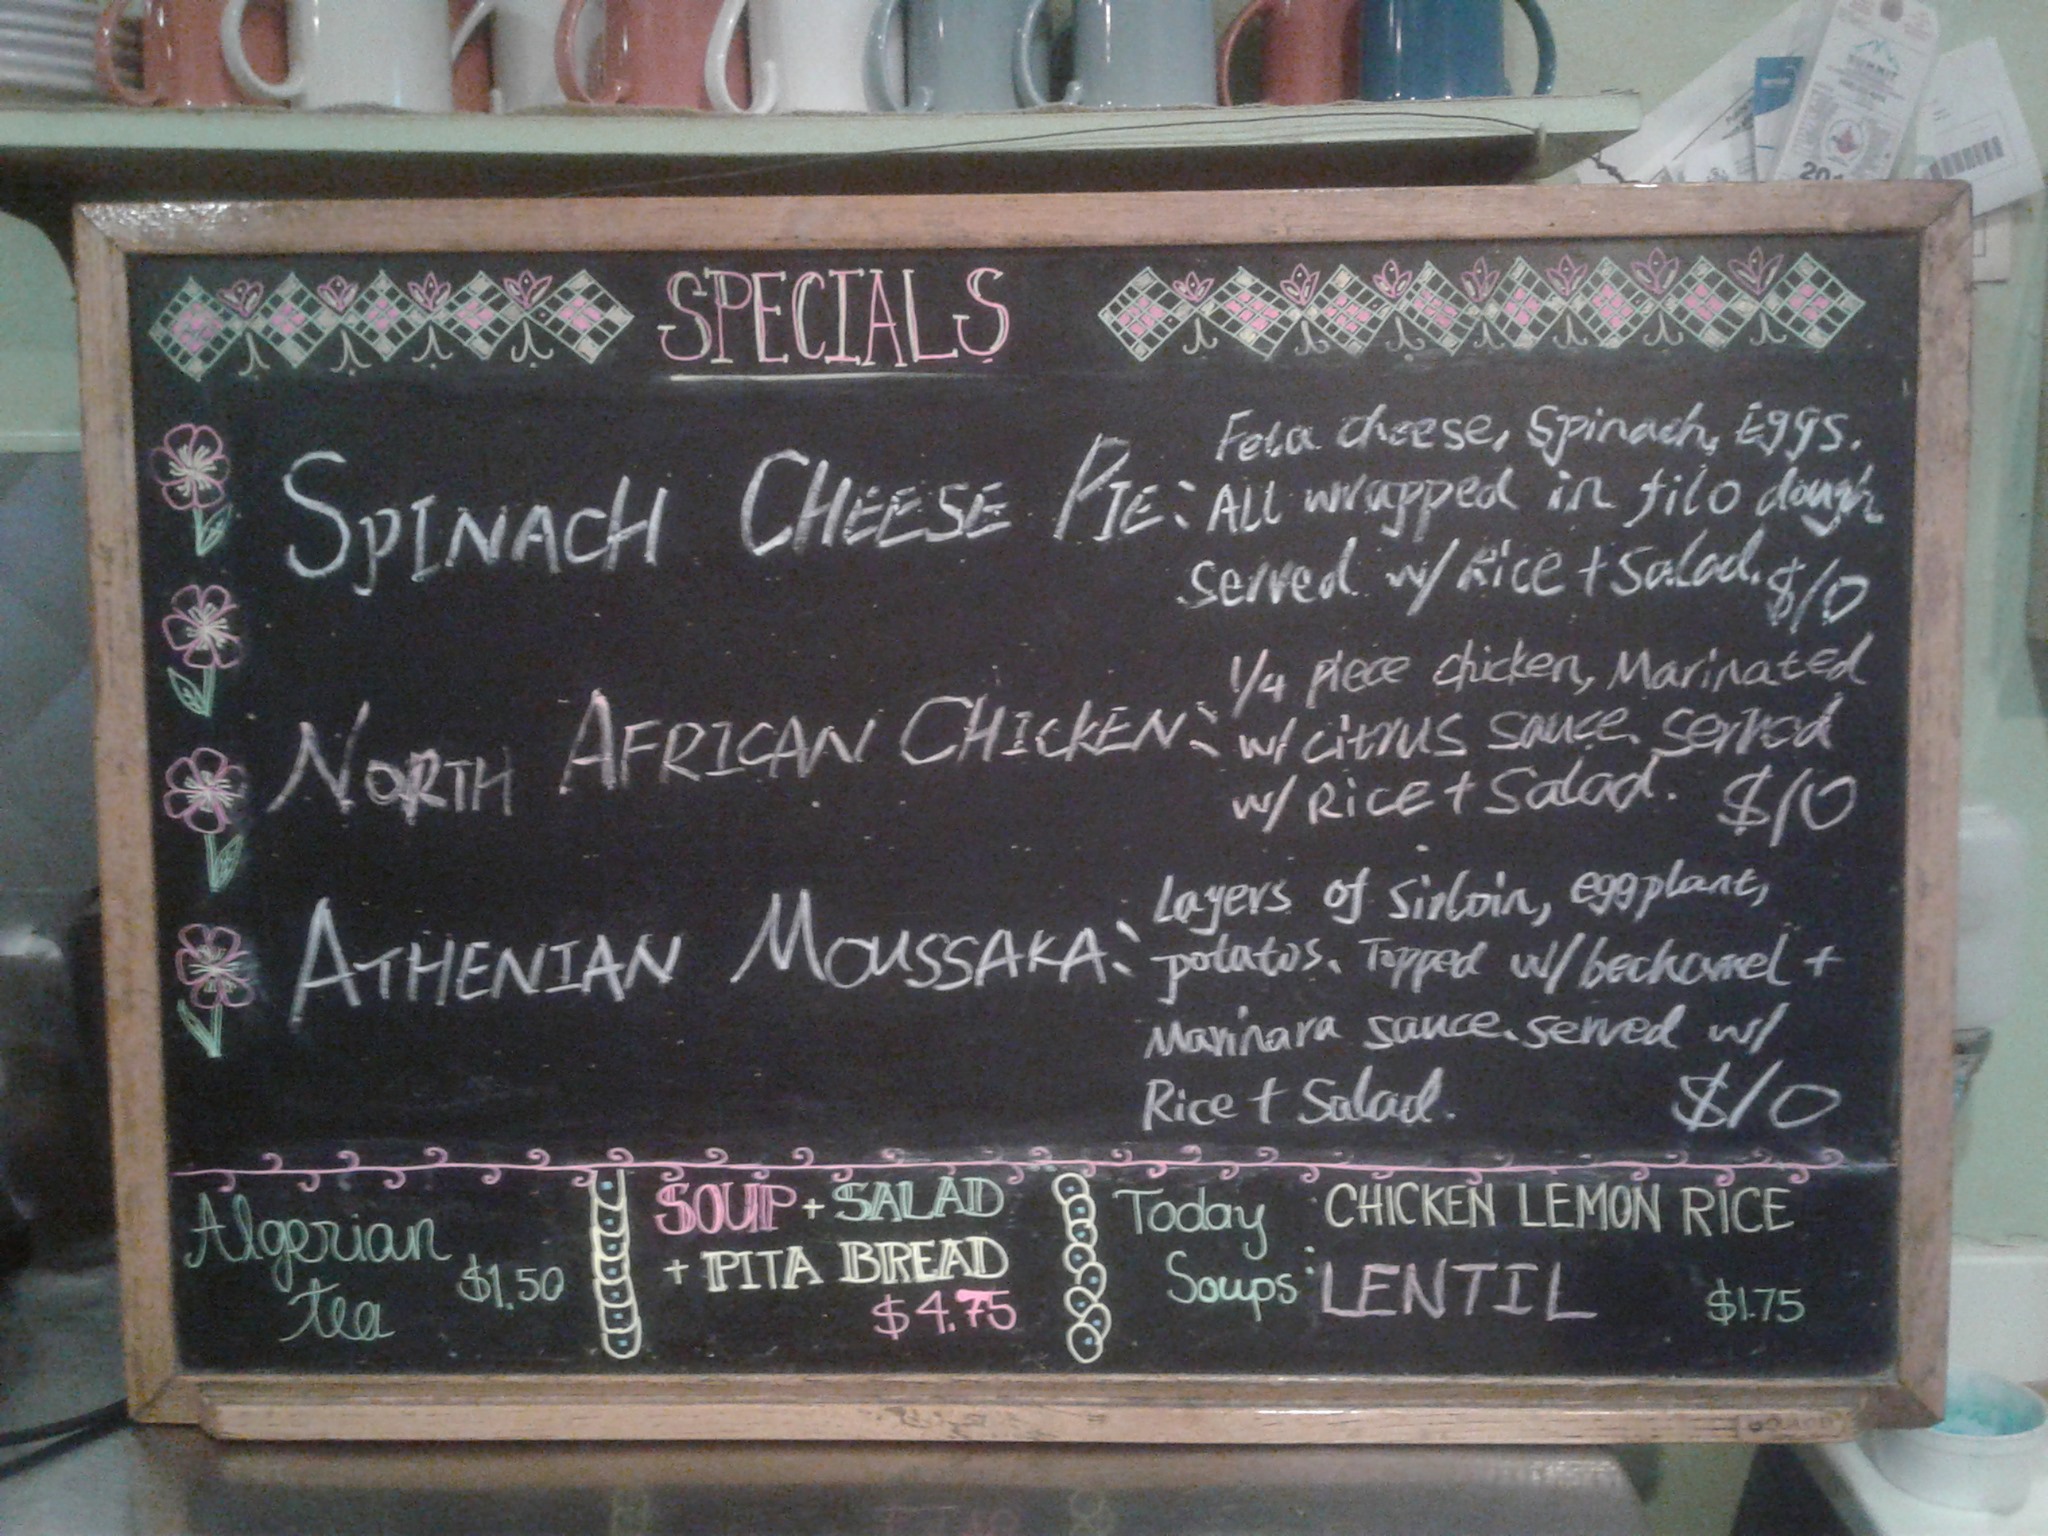 SUMMIT
SPECIALS
SPINACH CHEESE PIE:
Feta cheese, Spinach, Eggs.
All wrapped in filo dough
served w/ Rice + Salad. $10
NORTH AFRICAN CHICKEN:
1/4 piece chicken, Marinated
w/ citrus sauce. served
w/ Rice + Salad. $10
ATHENIAN MOUSSAKA:
Layers of sirloin, eggplant,
potatos. Topped w/ bechamel +
Marinara sauce. served w/
Rice + Salad. $10
Algerian
tea $1.50
SOUP + SALAD
+ PITA BREAD
$4.75
Today
Soups:
CHICKEN LEMON RICE
LENTIL $1.75